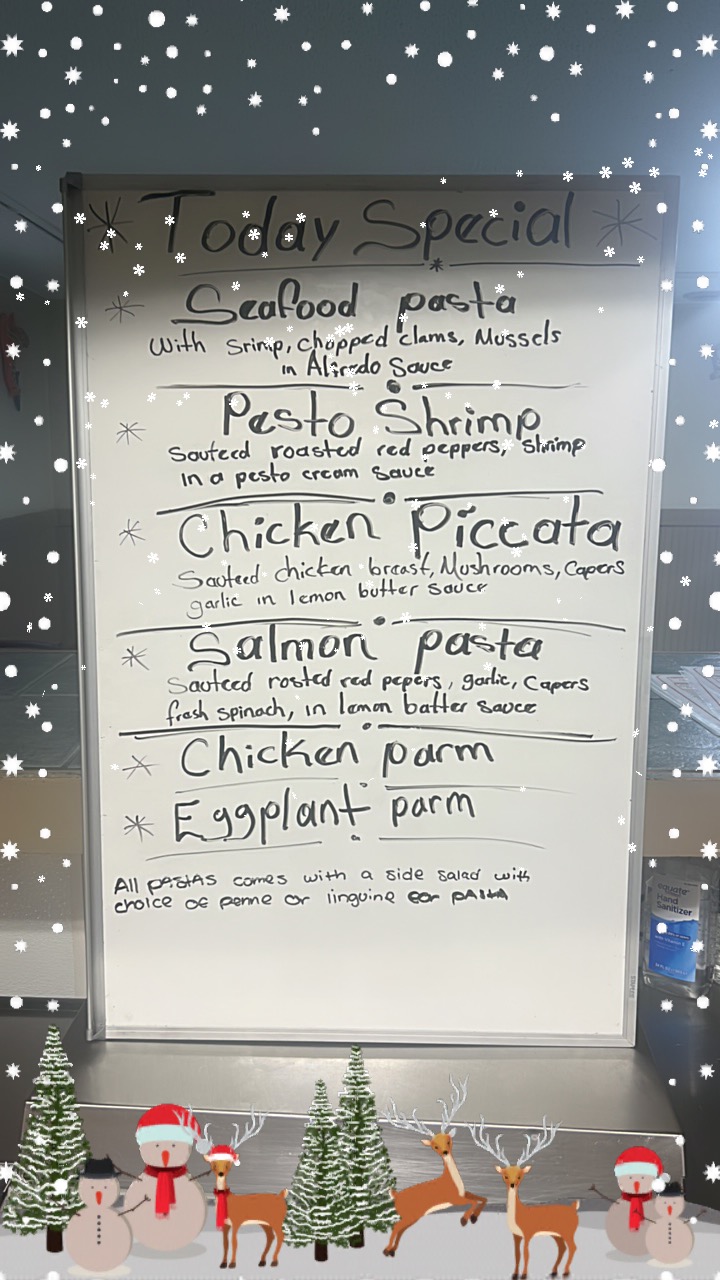 Today Special
Seafood pasta
With Srimp, chopped clams, Mussels
in Alfredo Sauce
Pesto Shrimp
Sauteed roasted red peppers, shrimp
in a pesto cream sauce
Chicken Piccata
Sauteed chicken breast, Mushrooms, Capers
garlic in lemon butter sauce
Salmon pasta
Sauteed rosted red pepers, garlic, Capers
frash spinach, in lemon batter sauce
Chicken parm
Eggplant parm
All pastas comes with a side salad with
choice of penne or linguine pasta
equate
Hand
Sanitizer